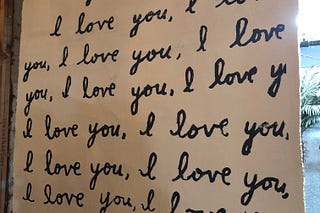 I love you, I love
you, I love you, I love
you, I love you, I love y
I love you, I love you,
I love you, I love you,
I love you, I love